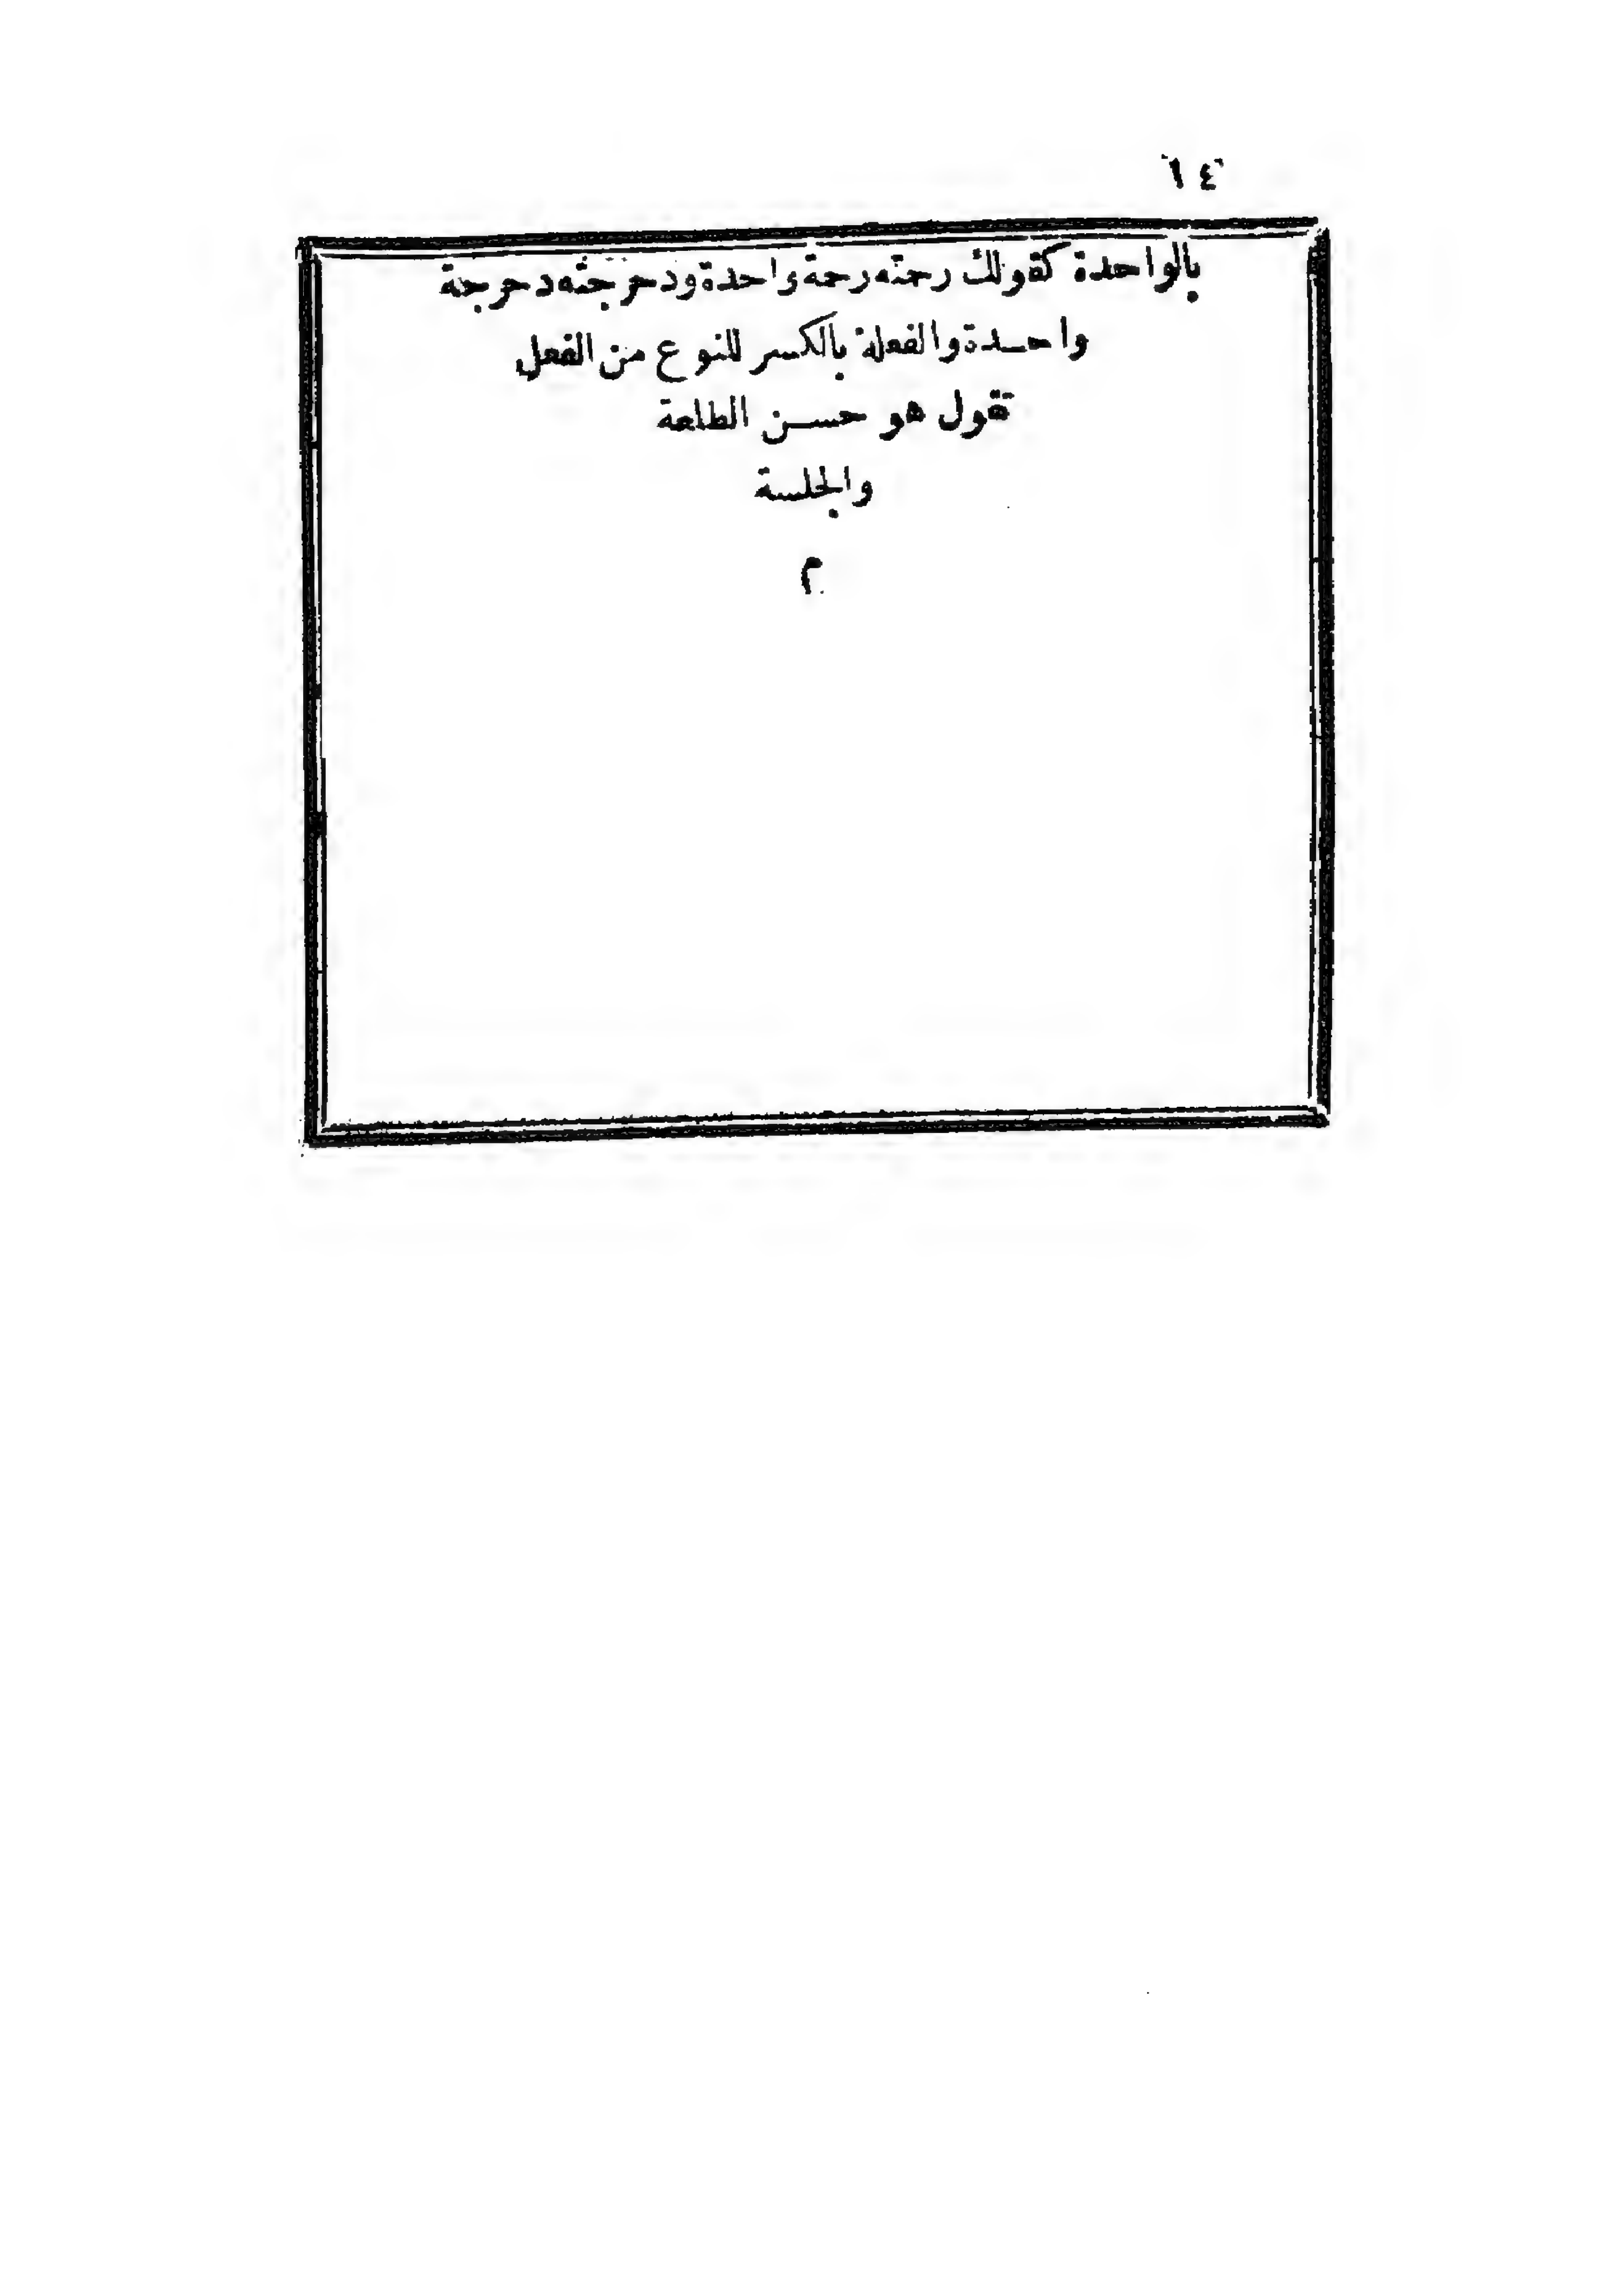 ٦٤
بالواحدة كقولك رحمته رحمة واحدة ودحرجته دحرجة
واحدة والفعلة بالكسر للنوع من الفعل
تقول هو حسن الطلعة
والجلسة
م